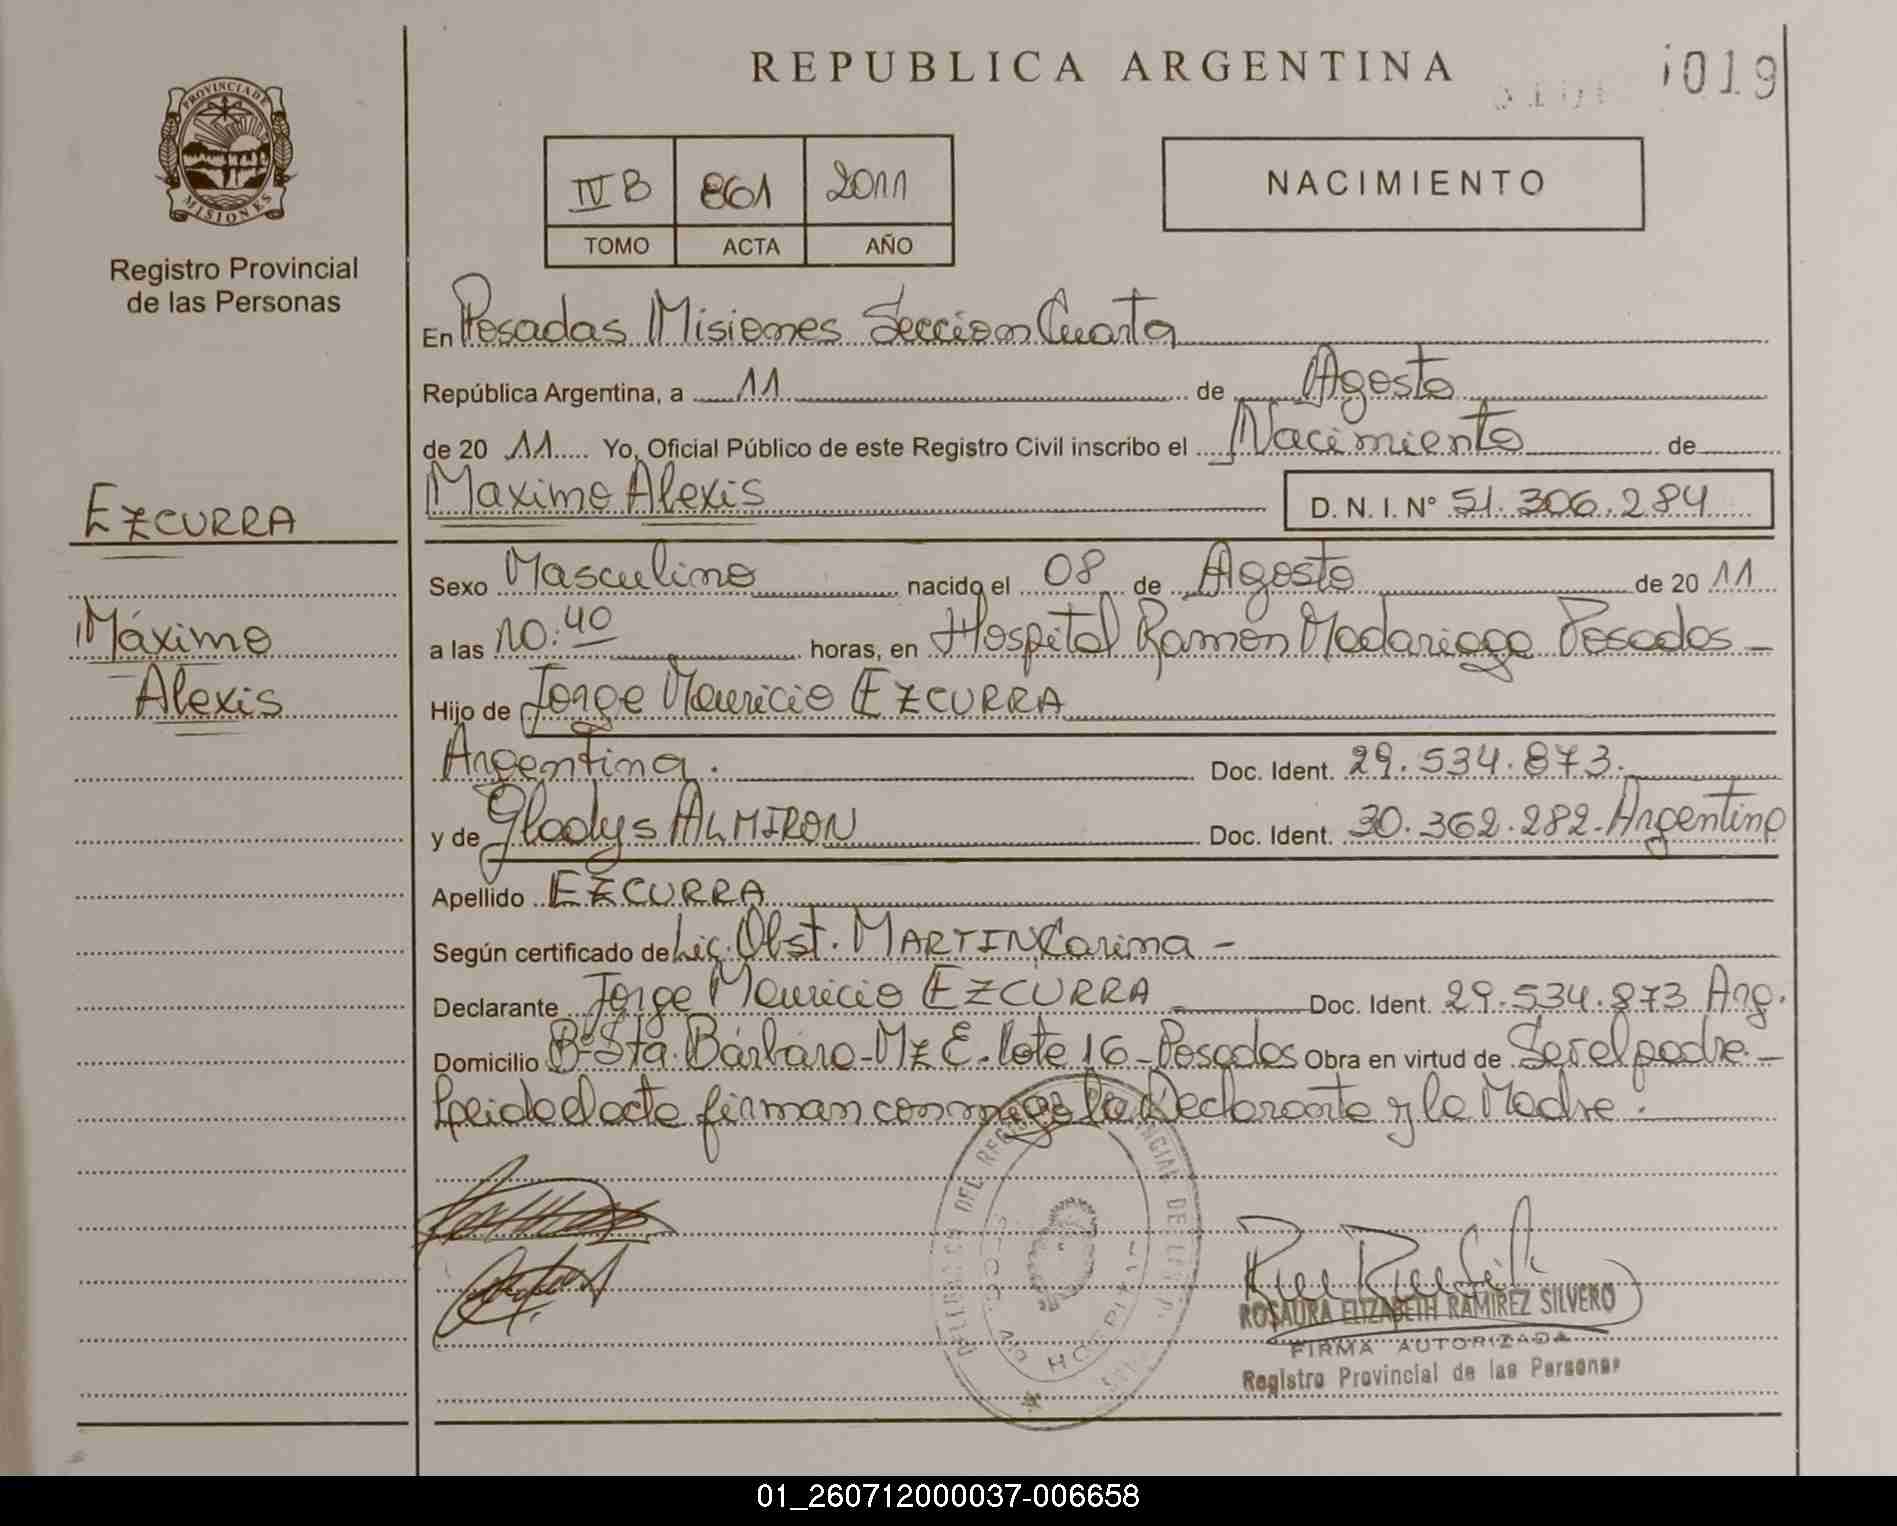 REPUBLICA ARGENTINA
1019
PROVINCIA DE
MISIONES
Registro Provincial
de las Personas
IV B 861 2011
TOMO ACTA AÑO
NACIMIENTO
En Posadas Misiones Seccion Cuarta
República Argentina, a 11 de Agosto
de 20 11 Yo, Oficial Público de este Registro Civil inscribo el Nacimiento de
Maximo Alexis D. N. I. Nº 51.306.284
EZCURRA
Máximo
Alexis
Sexo Masculino nacido el 08 de Agosto de 20 11
a las 10:40 horas, en Hospital Ramon Madariaga Posadas -
Hijo de Jorge Mauricio EZCURRA
Argentina. Doc. Ident. 29.534.873.
y de Gladys ALMIRON Doc. Ident. 30.362.282.- Argentina
Apellido EZCURRA
Según certificado de Lic. Obst. MARTIN Carina -
Declarante Jorge Mauricio EZCURRA Doc. Ident. 29.534.873 Arg.
Domicilio Bº Sta. Bárbara - Mz E - lote 16 - Posadas Obra en virtud de Ser el padre. -
Leida el acta firman conmigo la Declarante y la Madre.
ROSAURA ELIZABETH RAMIREZ SILVERO
FIRMA AUTORIZADA
Registro Provincial de las Personas
01_260712000037-006658